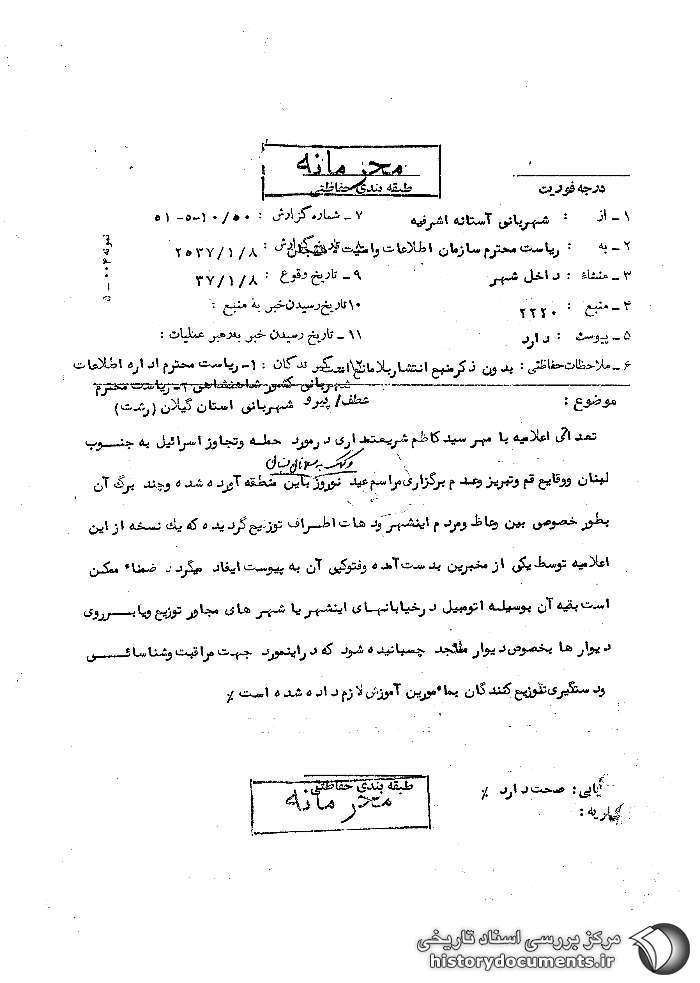 محرمانه
طبقه بندی حفاظتی
درجه فوریت
۱ـ از : شهربانی آستانه اشرفیه
۷ـ شماره گزارش : ۵۰/۱۰-۵-۵۱
۲ـ به : ریاست محترم سازمان اطلاعات وامنیت
۸ـ تاریخ گزارش : ۲۵۳۷/۱/۸
۳ـ منشاء : داخل شهر
۹ـ تاریخ وقوع : ۳۷/۱/۸
۴ـ منبع : ۲۲۲۰
۱۰تاریخ رسیدن خبر به منبع :
۵ـ پیوست : دارد
۱۱ـ تاریخ رسیدن خبر به رهبر عملیات :
۶ـ ملاحظات حفاظتی : بدون ذکر منبع انتشار بلامانع است
گیرندگان : ۱- ریاست محترم اداره اطلاعات
شهربانی کشور شاهنشاهی ۲- ریاست محترم
موضوع :
عطف/ پیرو شهربانی استان گیلان (رشت)
تعدادی اعلامیه با مهر سید کاظم شریعتمداری در مورد حمله وتجاوز اسرائیل به جنوب
لبنان ووقایع قم وتبریز وعدم برگزاری مراسم عید نوروز باین منطقه آورده شده وچند برگ آن
بطور خصوصی بین وعاظ ومردم اینشهر ودهات اطراف توزیع گردیده که یك نسخه از این
اعلامیه توسط یکی از مخبرین بدست آمده وفتوکپی آن به پیوست ایفاد میگردد ضمناء ممکن
است بقیه آن بوسیله اتومبیل در خیابانهای اینشهر یا شهر های مجاور توزیع ویا بـــرروی
دیوار ها بخصوص دیوار مساجد چسبانیده شود که دراینمورد جهت مراقبت وشناسائـــی
ودستگیری توزیع کنندگان بماءمورین آموزش لازم داده شده است ٪
صحت دارد ٪
طبقه بندی حفاظتی
محرمانه
نمونه ۰۰۴ - ۵
مرکز بررسی اسناد تاریخی
historydocuments.ir